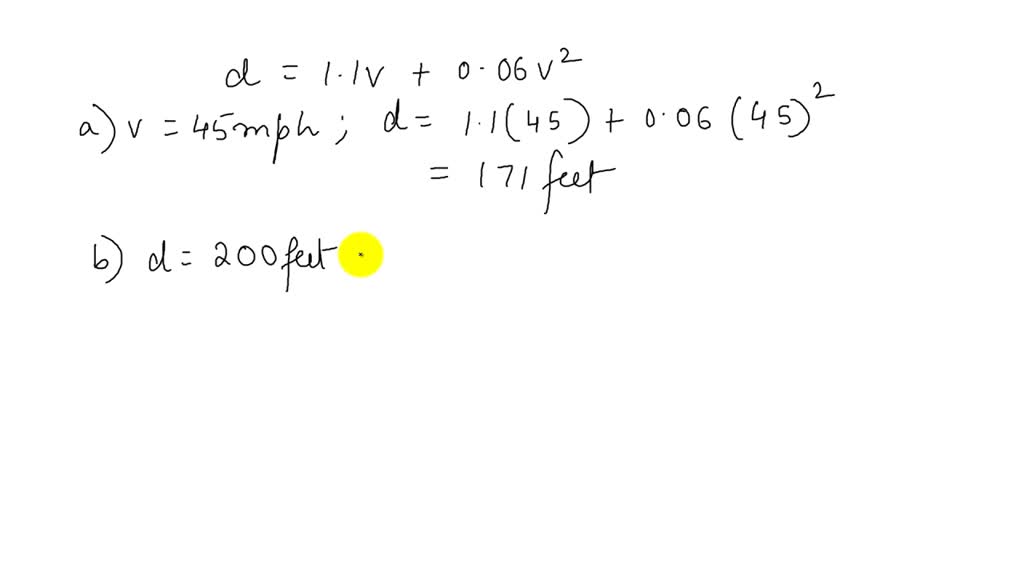 d = 1.1v + 0.06v²
a) v = 45mph; d = 1.1(45) + 0.06(45)²
= 171 feet
b) d = 200 feet